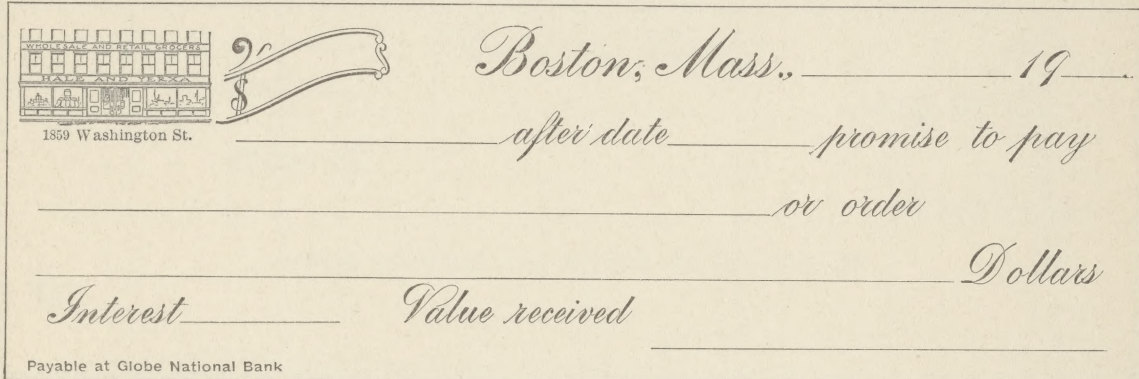 WHOLESALE AND RETAIL GROCERS
HALE AND YERXA
1859 Washington St.
$
Boston, Mass., 19 .
after date promise to pay
or order
Dollars
Interest Value received
Payable at Globe National Bank